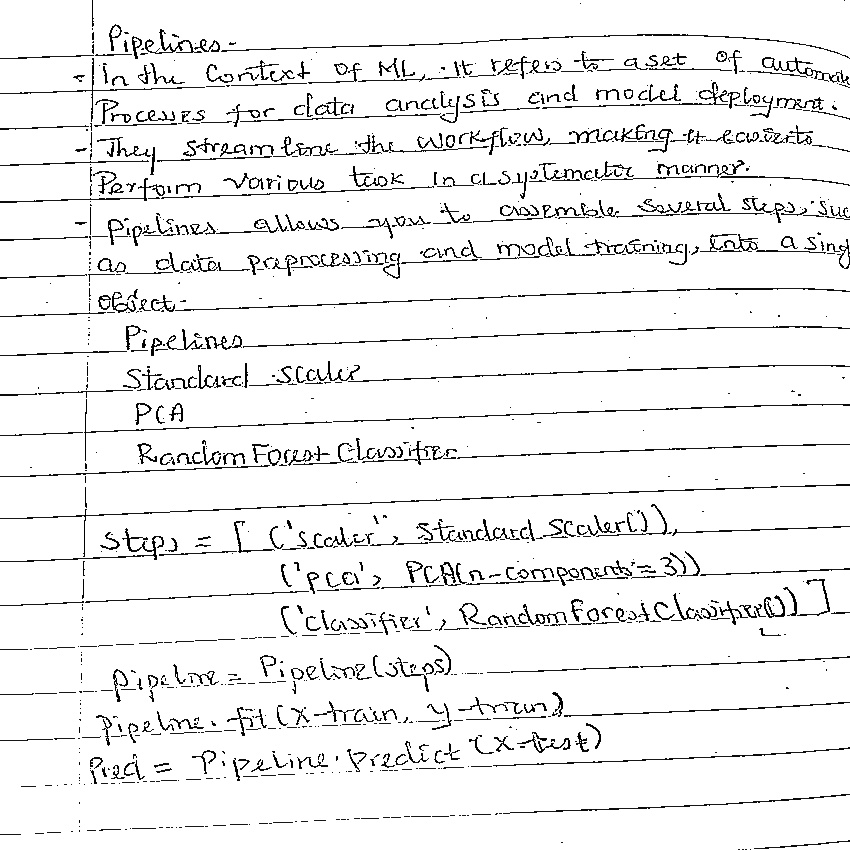 Pipelines-
- In the Context of ML, it refers to a set of automate
Processes for data analysis and model deployment.
- They streamline the workflow, making it easier to
Perform various task in a systematic manner.
- Pipelines allows you to assemble several steps, suc
as data preprocessing and model training, into a sing
object-
Pipelines
Standard scaler
PCA
RandomForestClassifier
Steps = [ ('scaler", Standard Scaler()),
('pca', PCA(n-components=3))
('classifier', RandomForestClassifier()) ]
pipeline = Pipeline(steps)
Pipeline.fit(X-train, y-train)
Pred = Pipeline.predict(X-test)